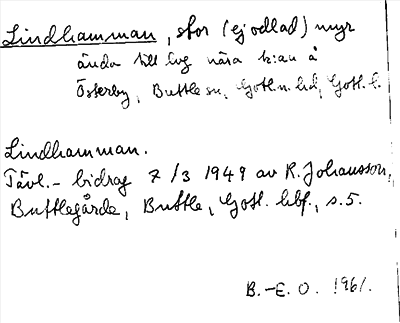 Lindhamman, stor (ej odlad) myr
ända till lvg nära k:an å
Österby, Buttle sn, Gotl. n. hd, Gotl. l.
Lindhamman.
Tävl.- bidrag 7/3 1949 av R. Johansson,
Buttlegårde, Buttle, Gotl. hbf., s. 5.
B.-E. O. 1961.